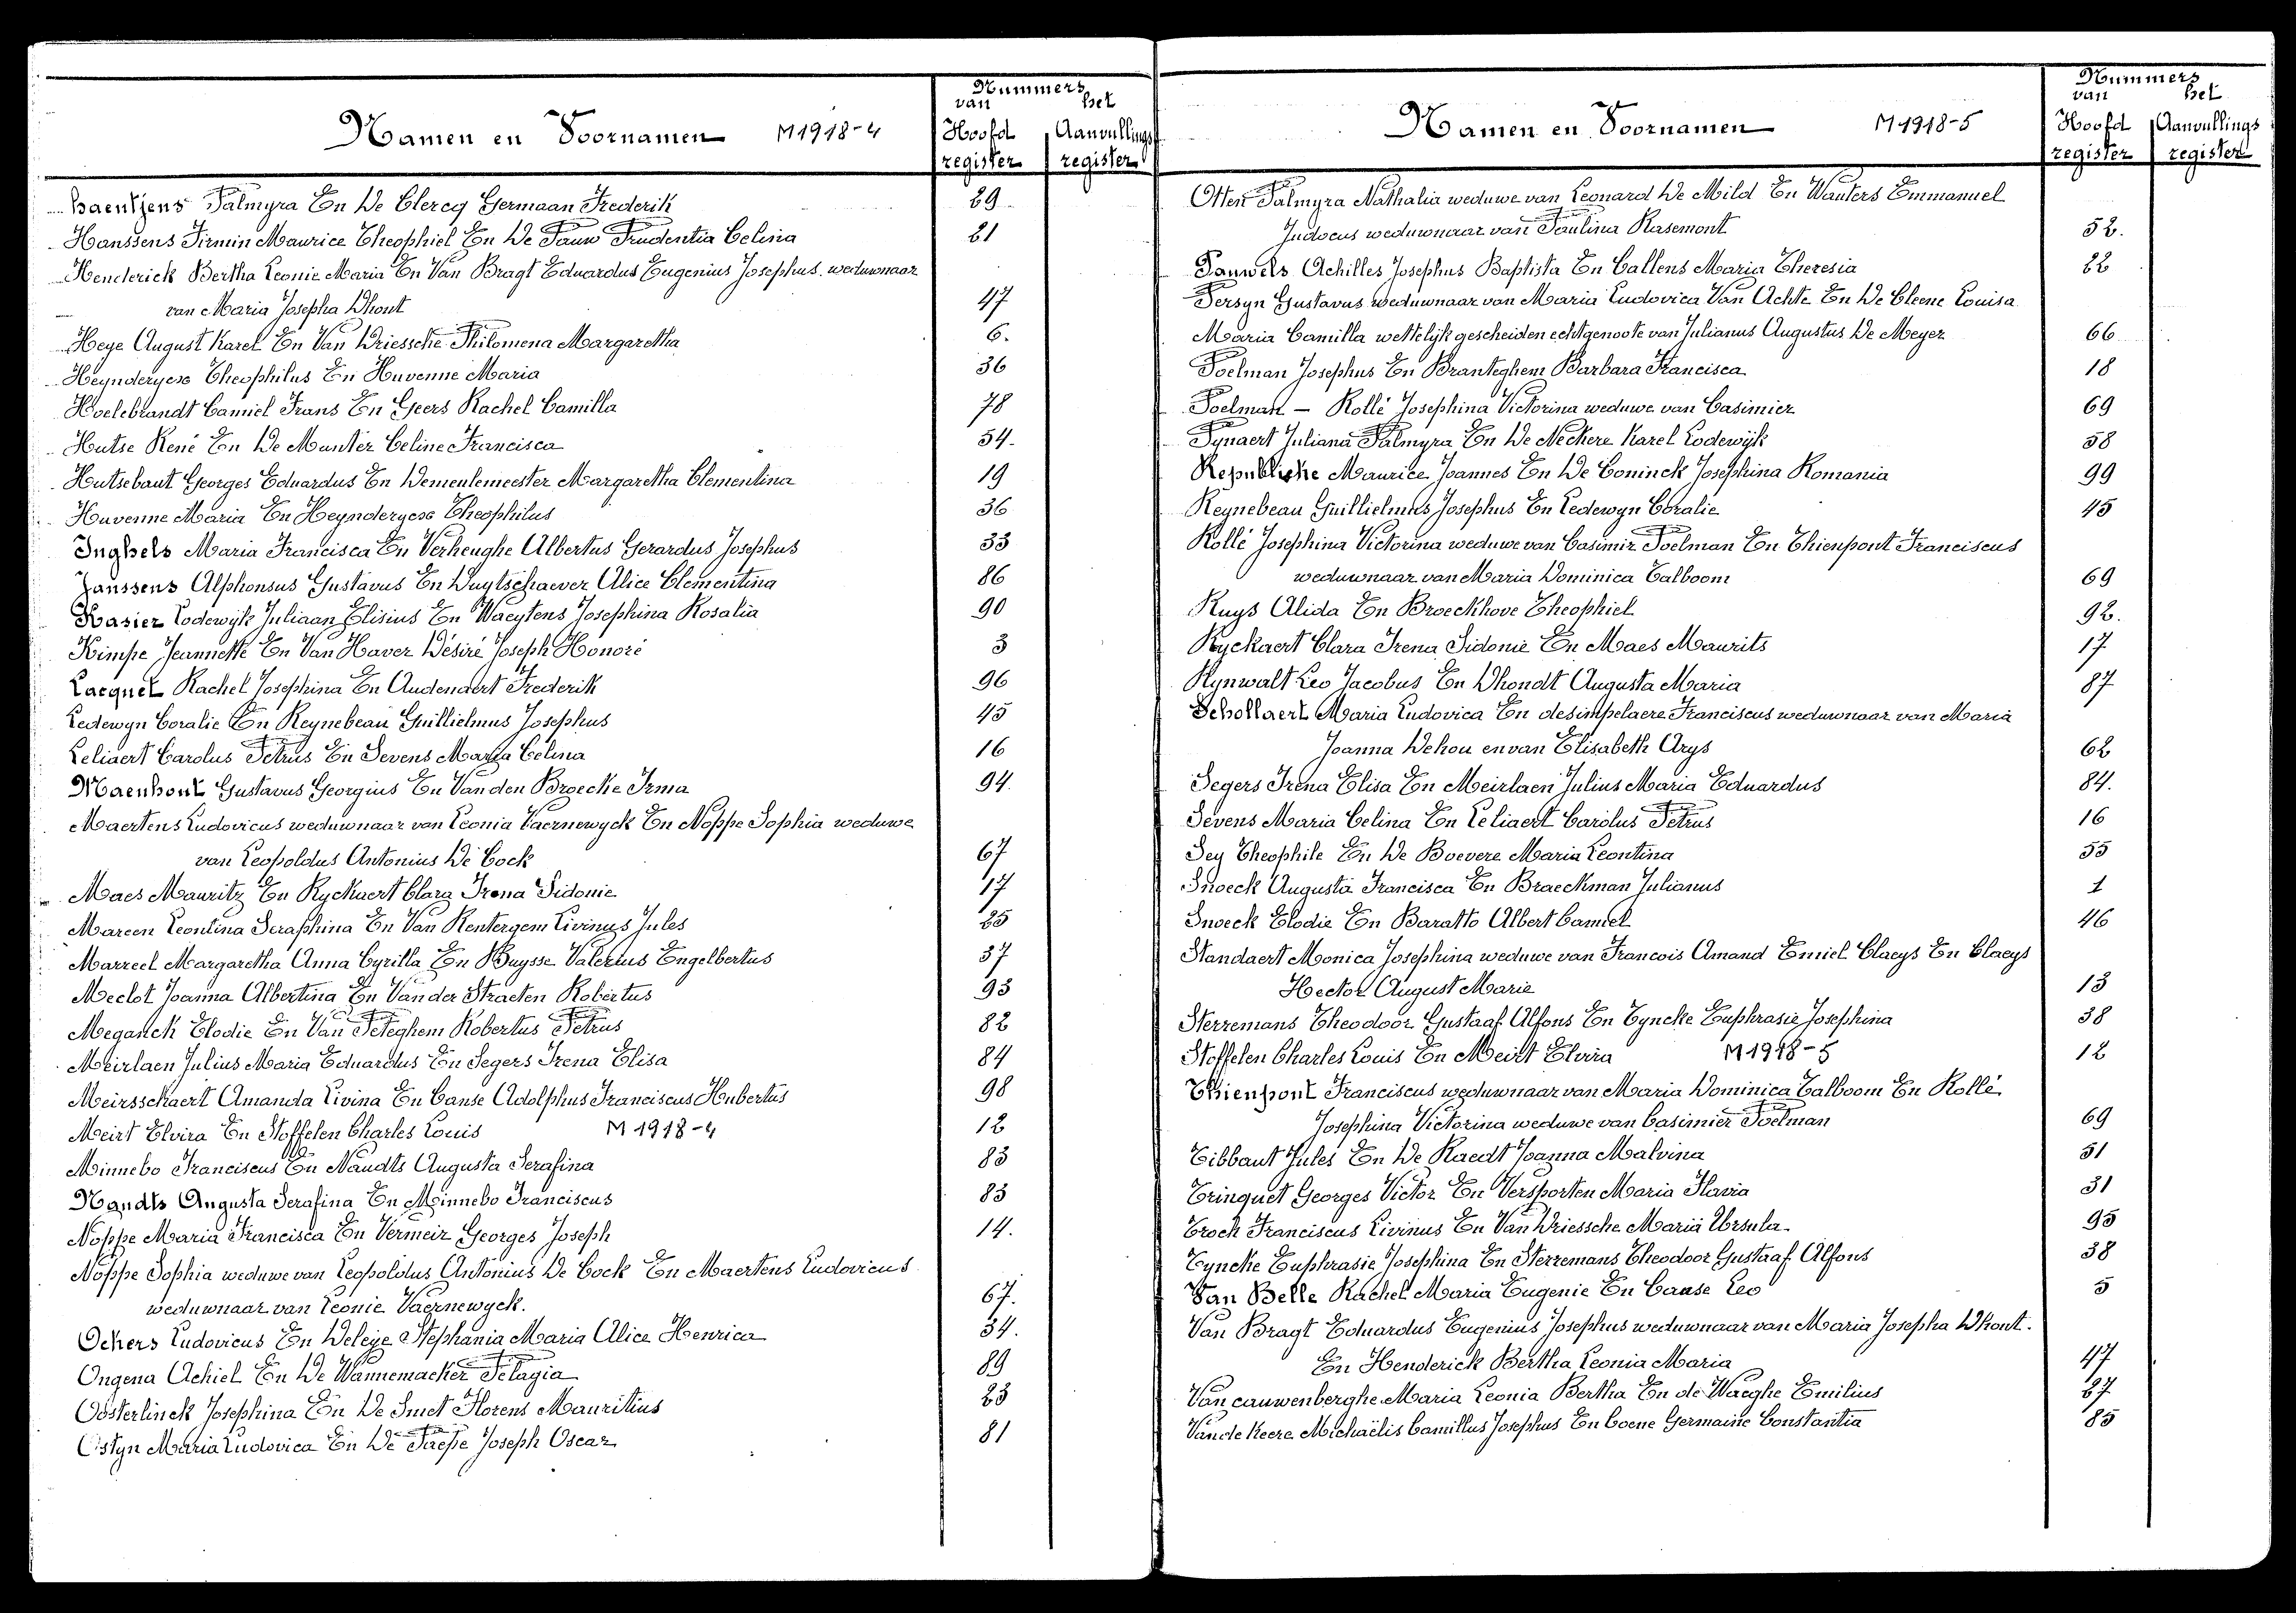 Namen en Voornamen M1918-4 Nummers van het Hoofd register Aanvullings register
Haentjens Palmyra En De Clercq Germaan Frederik 29
Hanssens Firmin Maurice Theophiel En De Pauw Prudentia Celina 21
Henderick Bertha Leonie Maria En Van Bragt Eduardus Eugenius Josephus weduwnaar
van Maria Josepha Dhont 47
Heye August Karel En Van Driessche Philomena Margaretha 6.
Heynderycxs Theophilus En Huvenne Maria 36
Hoelebrandt Camiel Frans En Geers Rachel Camilla 78
Hutse René En De Munter Celine Francisca 54.
Hutsebaut Georges Eduardus En Demeulemeester Margaretha Clementina 19
Huvenne Maria En Heynderycxs Theophilus 36
Inghels Maria Francisca En Verheughe Albertus Gerardus Josephus 33
Janssens Alphonsus Gustavus En Duytschaever Alice Clementina 86
Kasier Lodewyk Juliaan Elisius En Waeytens Josephina Rosalia 90
Kimpe Jeannette En Van Haver Désiré Joseph Honoré 3
Lacquet Rachel Josephina En Audenaert Frederik 96
Ledewyn Coralie En Reynebeau Guillielmus Josephus 45
Leliaert Carolus Petrus En Sevens Maria Celina 16
Maenhout Gustavus Georgius En Van den Broecke Irma 94.
Maertens Ludovicus weduwnaar van Leonia Vaernewyck En Noppe Sophia weduwe
van Leopoldus Antonius De Cock 67
Maes Mauritz En Ryckaert Clara Irena Sidonie 17
Mareen Leontina Seraphina En Van Rentergem Livinus Jules 25
Marreel Margaretha Anna Cyrilla En Buysse Valerius Engelbertus 37
Meclot Joanna Albertina En Van der Straeten Robertus 93
Meganck Elodie En Van Peteghem Robertus Petrus 82
Meirlaen Julius Maria Eduardus En Segers Irena Elisa 84
Meirsschaert Amanda Livina En Canse Adolphus Franciscus Hubertus 98
Meirt Elvira En Stoffelen Charles Louis M 1918-4 12
Minnebo Franciscus En Naudts Augusta Serafina 83
Naudts Augusta Serafina En Minnebo Franciscus 83
Noppe Maria Francisca En Vermeir Georges Joseph 14.
Noppe Sophia weduwe van Leopoldus Antonius De Cock En Maertens Ludovicus
weduwnaar van Leonie Vaernewyck. 67.
Ockers Ludovicus En Deleye Stephania Maria Alice Henrica 34.
Ongena Achiel En De Wannemacker Pelagia 89
Oosterlinck Josephina En De Smet Florens Mauritius 23
Ostyn Maria Ludovica En De Paepe Joseph Oscar 81
Namen en Voornamen M1918-5 Nummers van het Hoofd register Aanvullings register
Otten Palmyra Nathalia weduwe van Leonard De Mild En Wauters Emmanuel
Judocus weduwnaar van Paulina Rasemont 52.
Pauwels Achilles Josephus Baptista En Callens Maria Theresia 22
Persyn Gustavus weduwnaar van Maria Ludovica Van Achte En De Cleene Louisa
Maria Camilla wettelijk gescheiden echtgenoote van Julianus Augustus De Meyer 66
Poelman Josephus En Branteghem Barbara Francisca 18
Poelman – Rollé Josephina Victorina weduwe van Casimier 69
Pynaert Juliana Palmyra En De Neckere Karel Lodewyk 58
Republieke Maurice Joannes En De Coninck Josephina Romania 99
Reynebeau Guillielmus Josephus En Ledewyn Coralie 45
Rollé Josephina Victorina weduwe van Casimir Poelman En Thienpont Franciscus
weduwnaar van Maria Dominica Talboom 69
Ruys Alida En Broeckhove Theophiel 92.
Ryckaert Clara Irena Sidonie En Maes Maurits 17
Rynwalt Leo Jacobus En Dhondt Augusta Maria 87
Schollaert Maria Ludovica En desimpelaere Franciscus weduwnaar van Maria
Joanna Dehou en van Elisabeth Arys 62
Segers Irena Elisa En Meirlaen Julius Maria Eduardus 84.
Sevens Maria Celina En Leliaert Carolus Petrus 16
Sey Theophile En De Boevere Maria Leontina 55
Snoeck Augusta Francisca En Braeckman Julianus 1
Snoeck Elodie En Baratto Albert Camiel 46
Standaert Monica Josephina weduwe van Francois Amand Emiel Claeys En Claeys
Hector August Marie 13
Sterremans Theodoor Gustaaf Alfons En Tyncke Euphrasie Josephina 38
Stoffelen Charles Louis En Meirt Elvira M 1918-5 12
Thienpont Franciscus weduwnaar van Maria Dominica Talboom En Rollé
Josephina Victorina weduwe van Casimier Poelman 69
Tibbaut Jules En De Raedt Joanna Malvina 51
Trinquet Georges Victor En Versporten Maria Flavia 31
Troch Franciscus Livinus En Van Driessche Maria Ursula 95
Tyncke Euphrasie Josephina En Sterremans Theodoor Gustaaf Alfons 38
Van Belle Rachel Maria Eugenie En Canse Leo 5
Van Bragt Eduardus Eugenius Josephus weduwnaar van Maria Josepha Dhont.
En Henderick Bertha Leonia Maria 47
Van cauwenberghe Maria Leonia Bertha En de Waeghe Emilius 27
Van de Keere Michaëlis Camillus Josephus En Coene Germaine Constantia 85